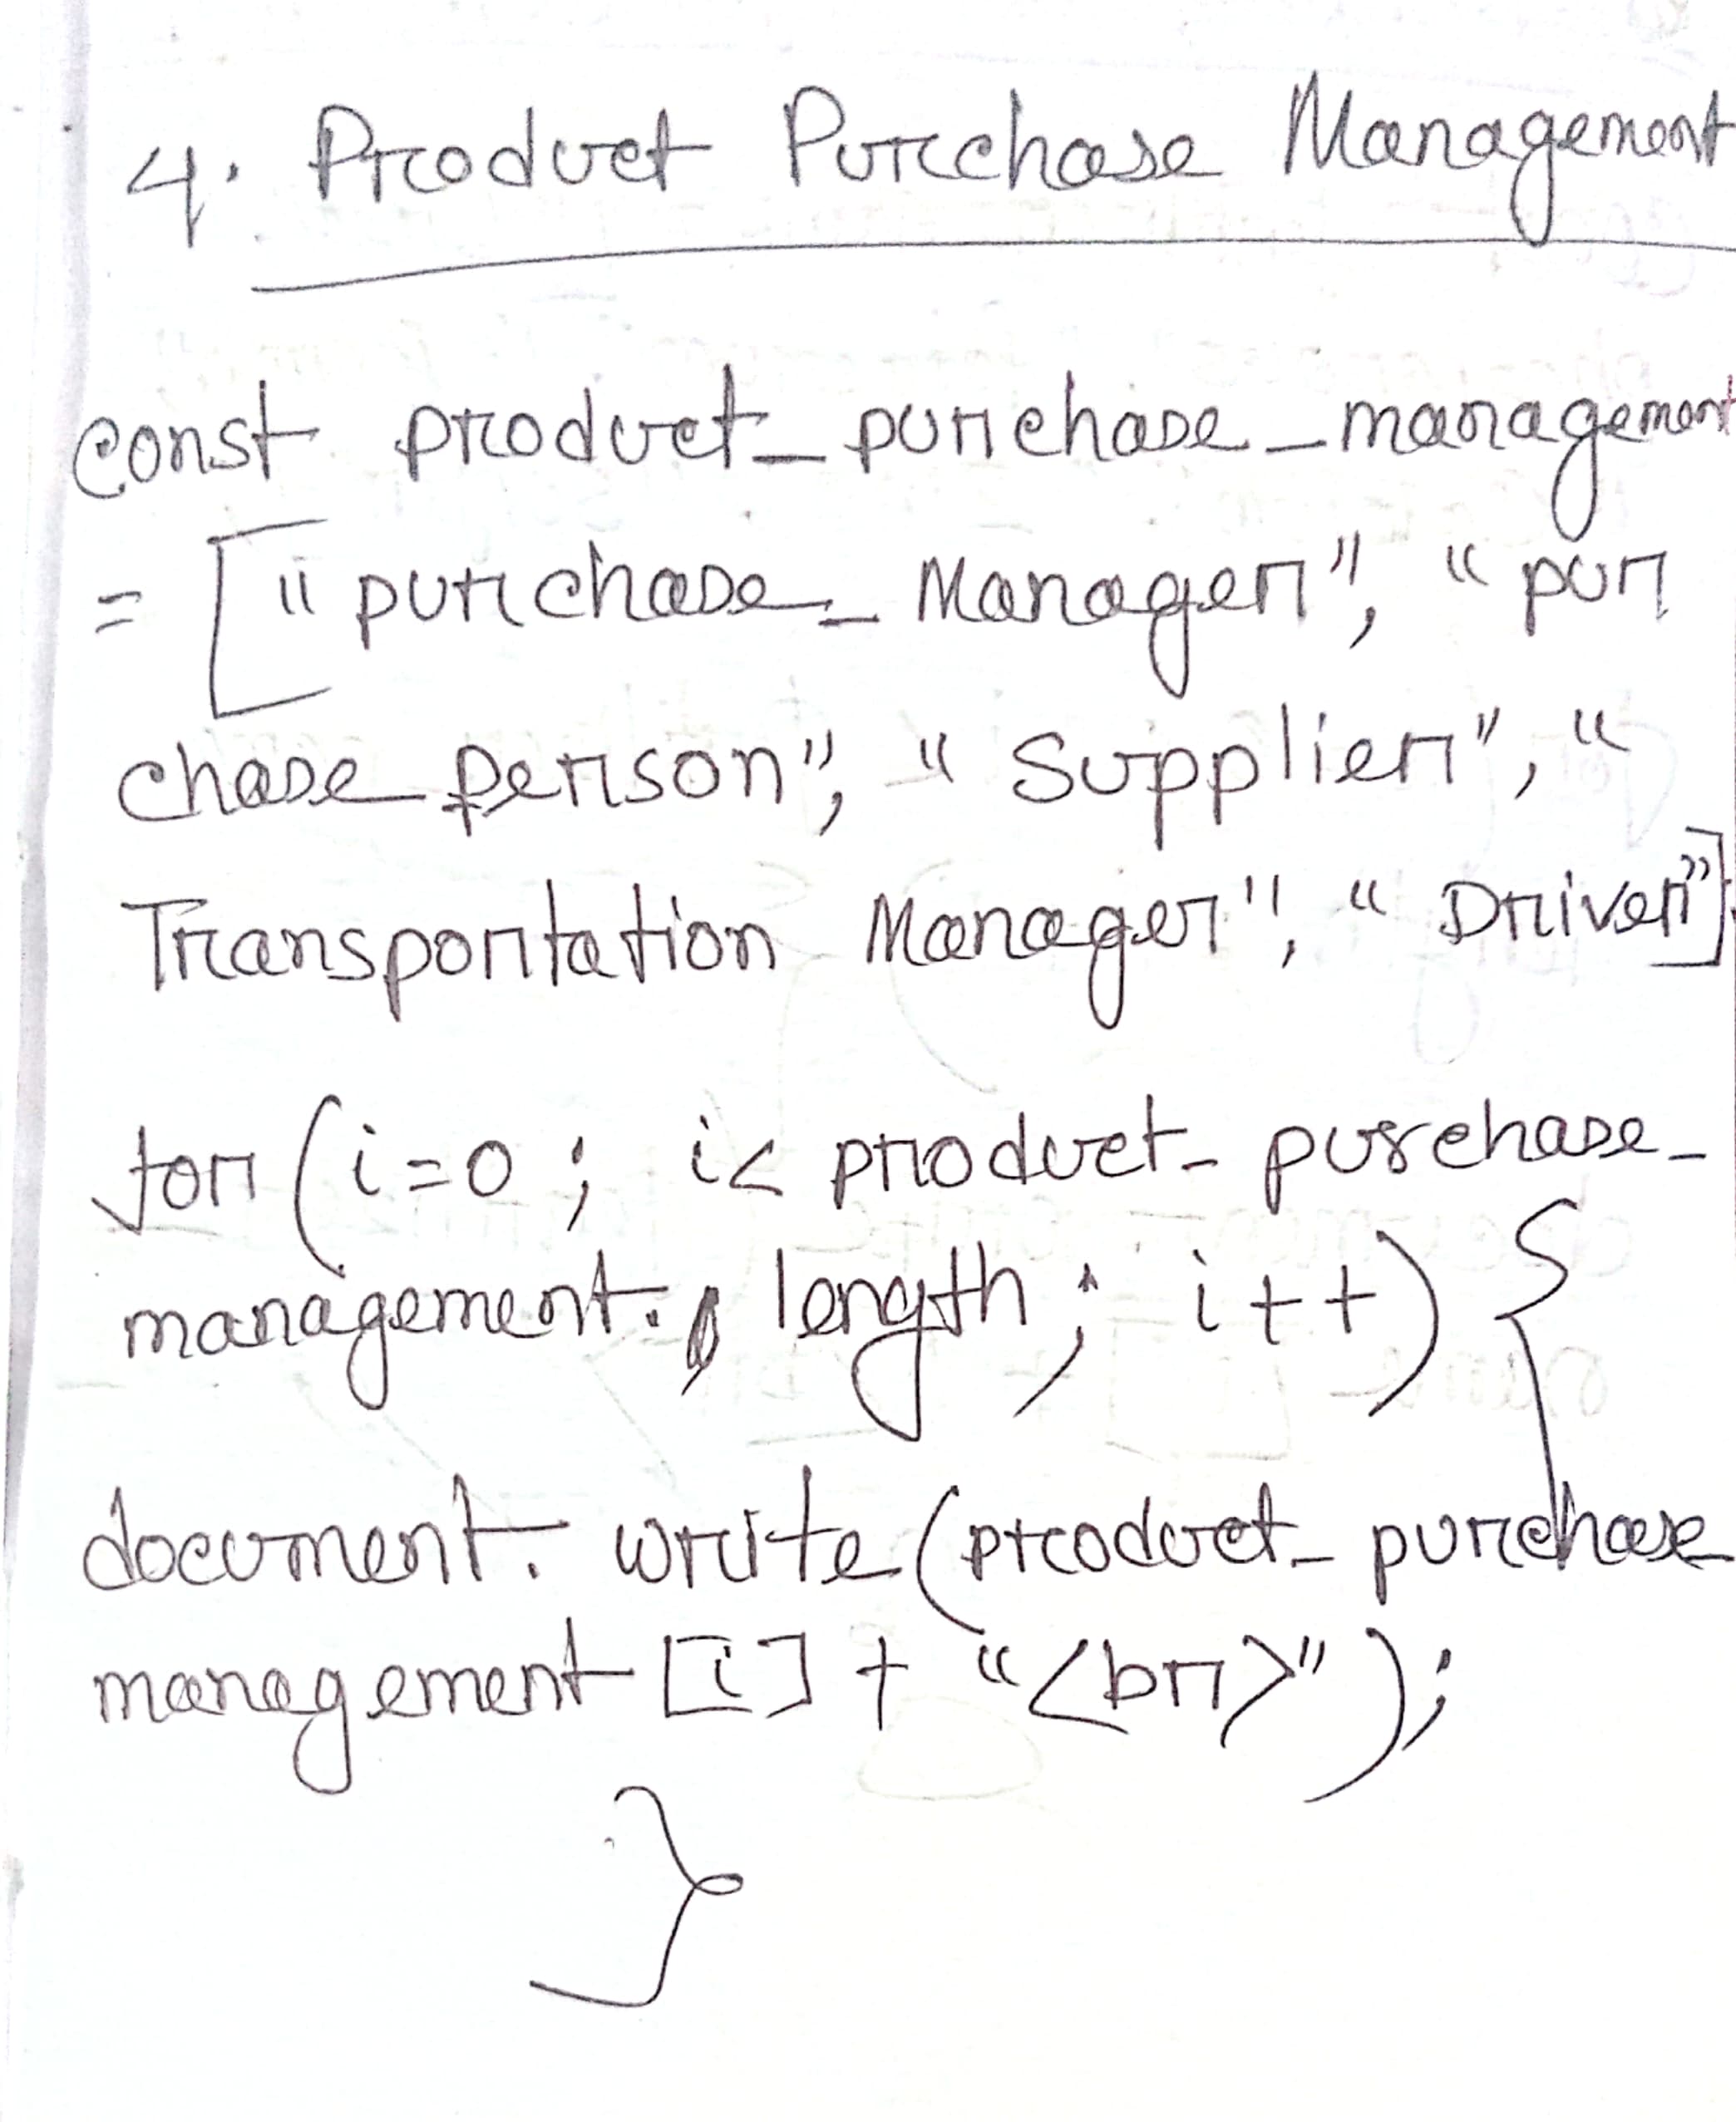 4. Product Purchase Management
const product_purchase_management
= ["purchase_Manager", "pur
chase_person", "Supplier", "
Transportation Manager", "Driver"];
for (i=0; i< product_purchase_
management. length; i++) {
document. write(product_purchase
management [i] + "<br>");
}